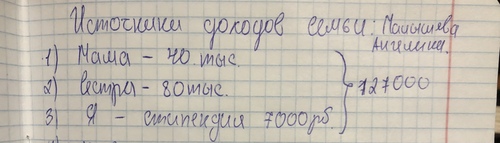 Источники доходов семьи: Малышева
Ангелина.
1) Мама – 40 тыс.
2) Сестра – 80 тыс.
3) Я – стипендия 7000 рб.
127000